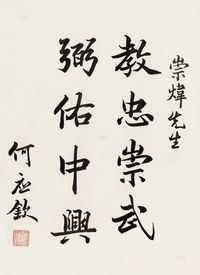 崇煒先生
教忠崇武
弼佑中興
何应欽